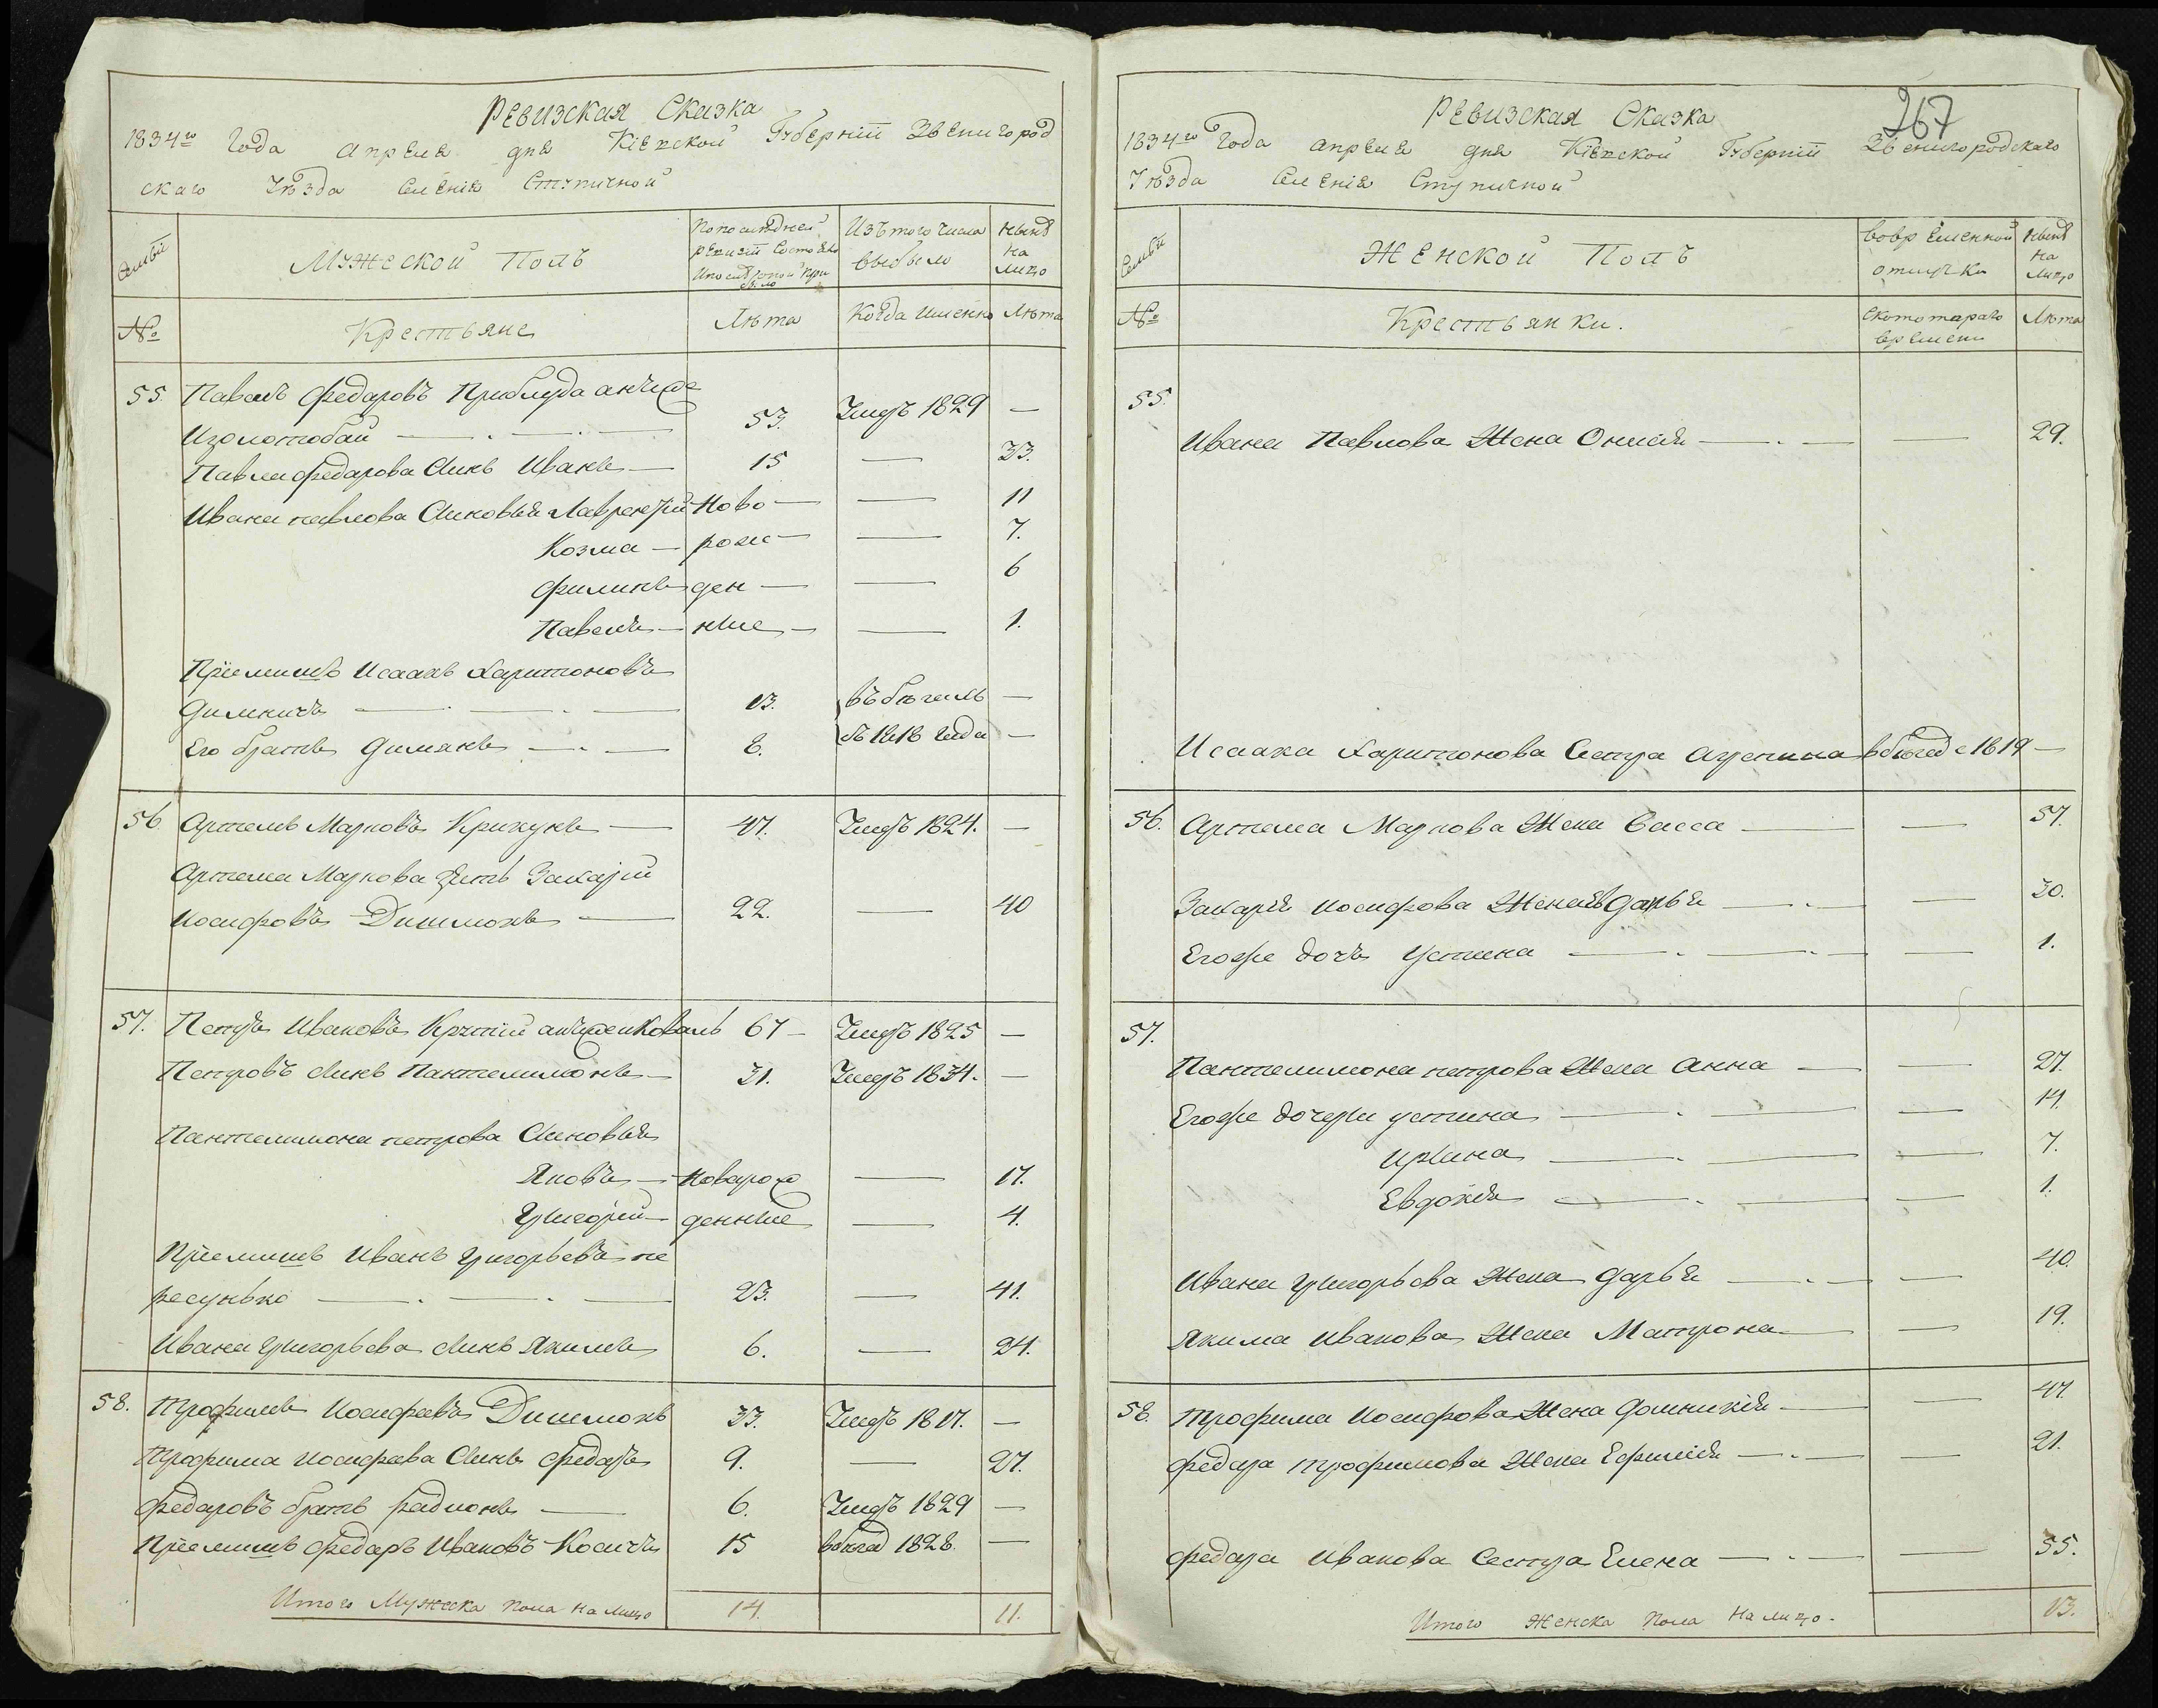 Ревизская Сказка
1834го Года Апреля дня Кіевской Губерніи Звенигород
скаго Уѣзда Селенія Ступичной
Семьи
Мужеской Полъ
По последней
ревизіи состояло
и после оной при
было
Изъ того числа
выбыло
Нынѣ
на
лицо
№
Крестьяне
Лѣта
Когда именно
Лѣта
55 Павелъ Федаровъ Приблуда анъ
Изолотобай 53. Умеръ 1829 —
Павла Федарова Синъ Иванъ 15 — 33.
Ивана павлова Синовья Лаврентій Ново — 11
Козма — рож — 7.
Филипъ ден — 6
Павелъ — ніе — 1.
Пріемишъ Исаакъ Харитоновъ
Димничъ 13. въ бѣгахъ —
Его братъ Димянъ 8. съ 1818 года —
56 Артемъ Марковъ Крикунъ 47. Умеръ 1824. —
Артема Маркова зять Захарій
Иосифовъ Дишлюкъ 22. — 40
57. Петръ Ивановъ Коваль 67 — Умеръ 1825 —
Петровъ Синъ Пантелимонъ 31. Умеръ 1834. —
Пантелимона петрова Синовья
Яковъ — Новарож — 17.
Григорій — денніе — 4.
Пріемишъ Иванъ Григорьевъ пе
ресунько 23. — 41.
Ивана Григорьева Синъ Якимъ 6. — 24.
58. Трофимъ Иосифовъ Дишлюкъ 33. Умеръ 1817. —
Трофима Иосифова Синъ Федаръ 9. — 27.
Федаровъ братъ Радионъ 6. Умеръ 1829 —
Пріемишъ Федаръ Ивановъ Косичъ 15 вбѣгах 1828. —
Итого Мужеска пола на лицо 14. 11.
267
Ревизская Сказка
1834го Года апреля дня Кіевской Губерніи Звенигородскаго
Уѣзда Селенія Ступичной
Семьи
Женской Полъ
Вовременной
отлучки
Нынѣ
на
лицо
№
Крестьянки.
Скототораго
времени
Лѣта
55.
Ивана Павлова Жена Онисія — 29.
Исаака Харитонова Сестра Агрепина вбѣгах с 1819 —
56. Артема Маркова Жена Васса — 57.
Захарія Иосифова Жена Евдокья — 30.
Егоже дочъ Устина — 1.
57.
Пантелимона петрова Жена Анна — 27.
Егоже дочери устина — 14.
Ирина — 7.
Евдокія — 1.
Ивана Григорьева Жена Дарья — 40.
Якима Иванова Жена Матрона — 19.
58. Трофима Иосифова Жена Домникія — 47
Федара трофимова Жена Ефимія — 21.
Федара Иванова Сестра Елена — 35.
Итого Женска пола на лицо. 13.